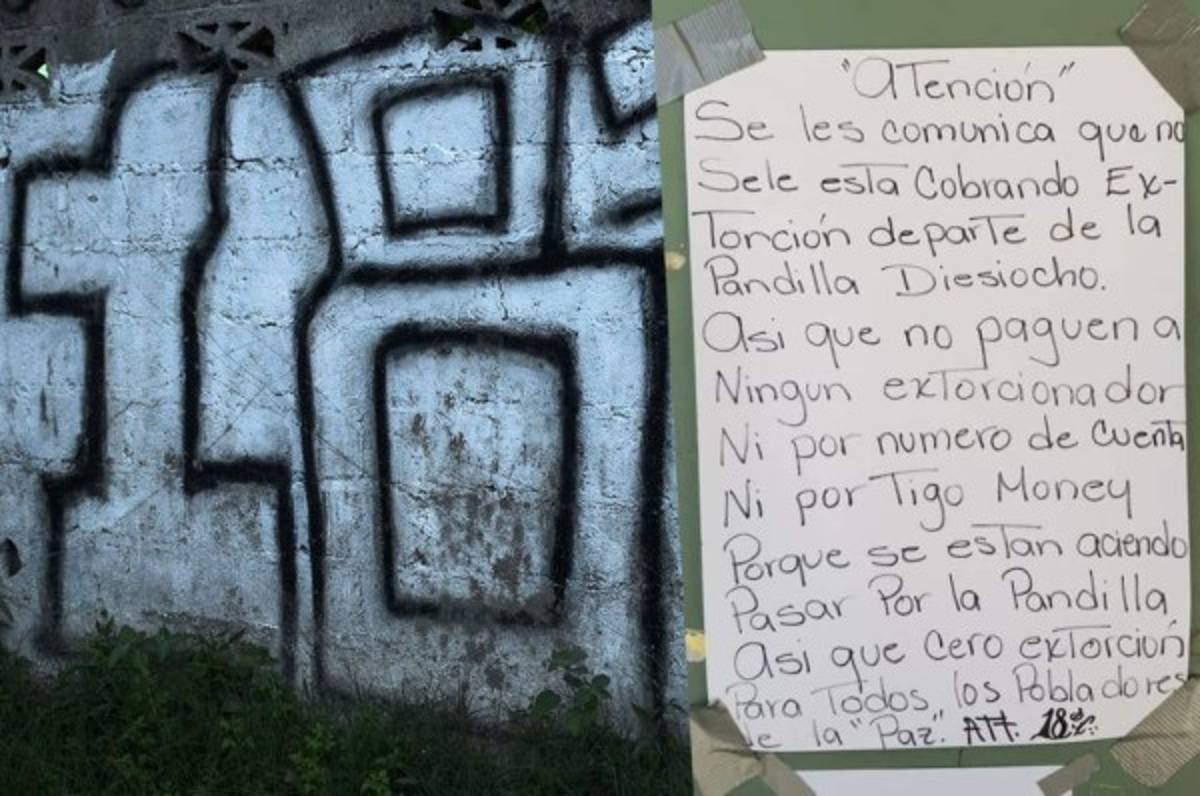 18
"ATención"
Se les comunica que no
Sele esta Cobrando Ex-
Torción departe de la
Pandilla Diesiocho.
Asi que no paguen a
Ningun exTorcionador
Ni por numero de Cuenta
Ni por Tigo Money
Porque se esTan aciendo
Pasar Por la Pandilla
Asi que Cero exTorción
Para Todos los Pobladores
de la "Paz". ATT. 18